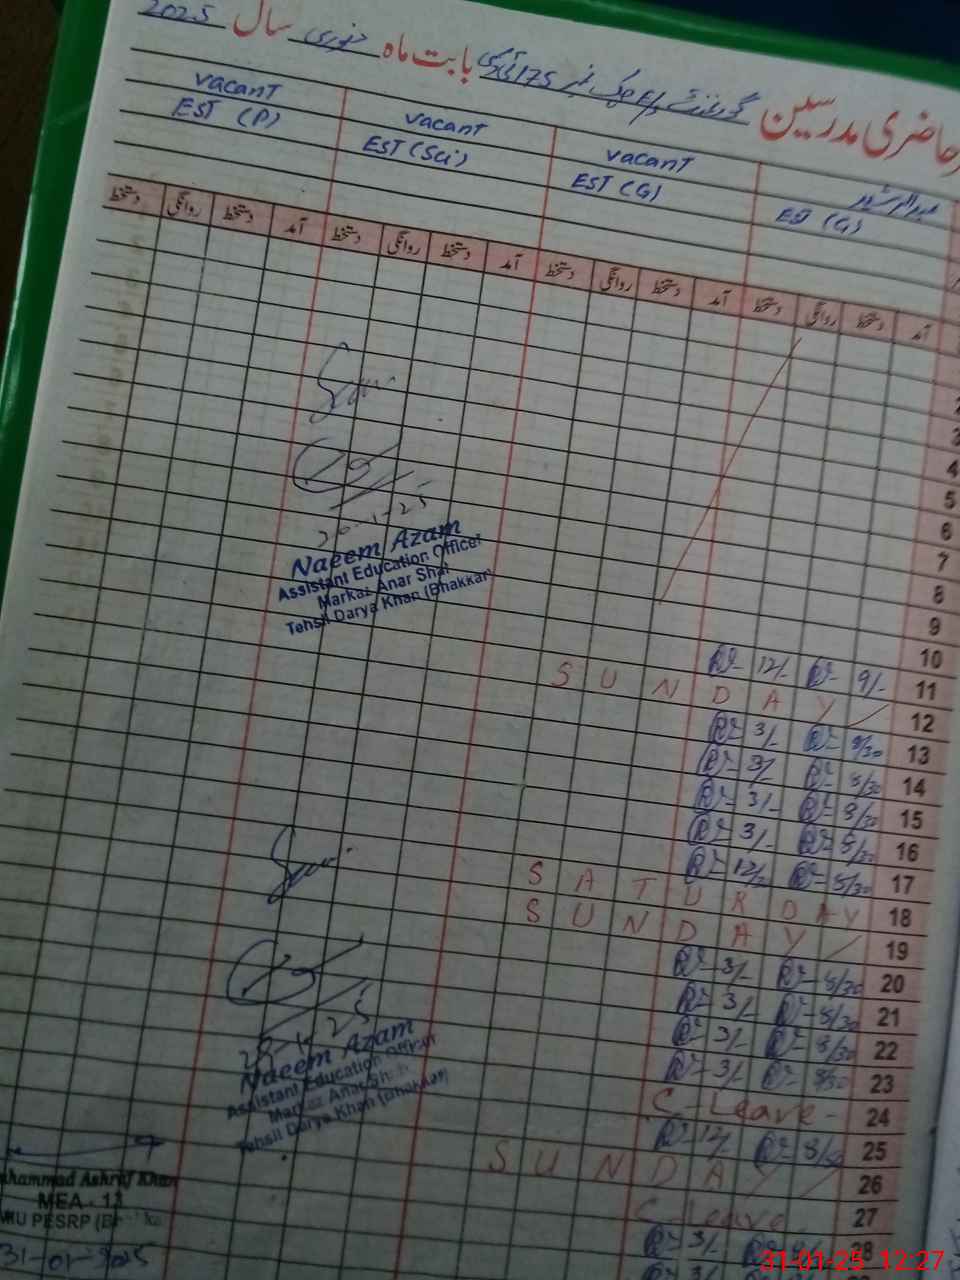 حاضری مدرسین گورنمنٹ بابت ماہ جنوری سال 2025
vacant vacant vacant
EST (P) EST (Sci) EST (G) EST (G)
آمد دستخط روانگی دستخط آمد دستخط روانگی دستخط آمد دستخط روانگی دستخط آمد دستخط روانگی دستخط
3
4
5
6
7
8
9
10
12/- 9/- 11
SUNDAY 12
3/- 8/30 13
3/- 8/30 14
3/- 8/30 15
3/- 8/30 16
8/30 17
SATURDAY 18
SUNDAY 19
3/- 8/30 20
3/- 8/30 21
3/- 8/30 22
3/- 8/30 23
C-Leave- 24
12/- 8/30 25
SUNDAY 26
C-Leave 27
3/- 28
20-1-25
Naeem Azam
Assistant Education Officer
Markaz Anar Shai
Tehsil Darya Khan (Bhakkar)
Naeem Azam
Assistant Education Officer
Tehsil Darya Khan (Bhakkar)
Ashraf Khan
MEA - 13
PESRP
31-01-2025
31-01-25 12:27